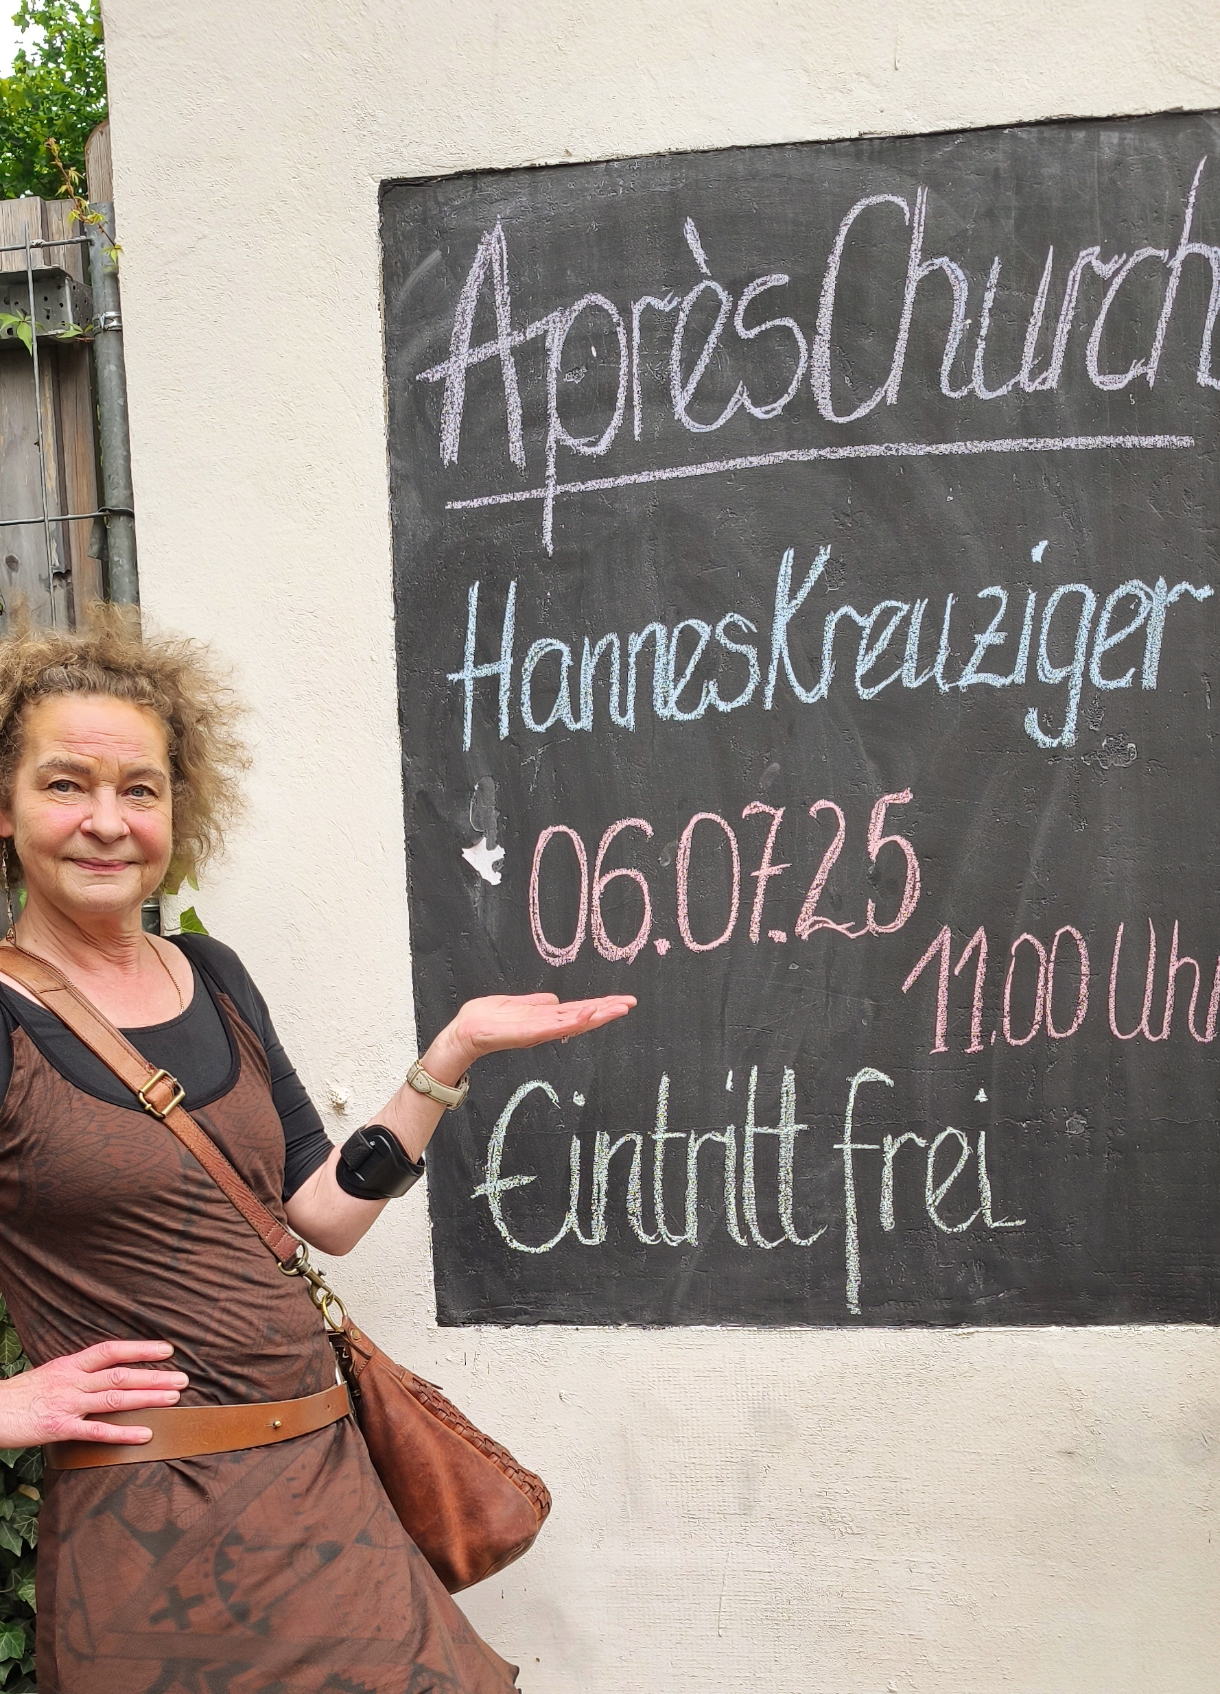 Après Church
Hannes Kreuziger
06.07.25
11.00 Uhr
Eintritt frei